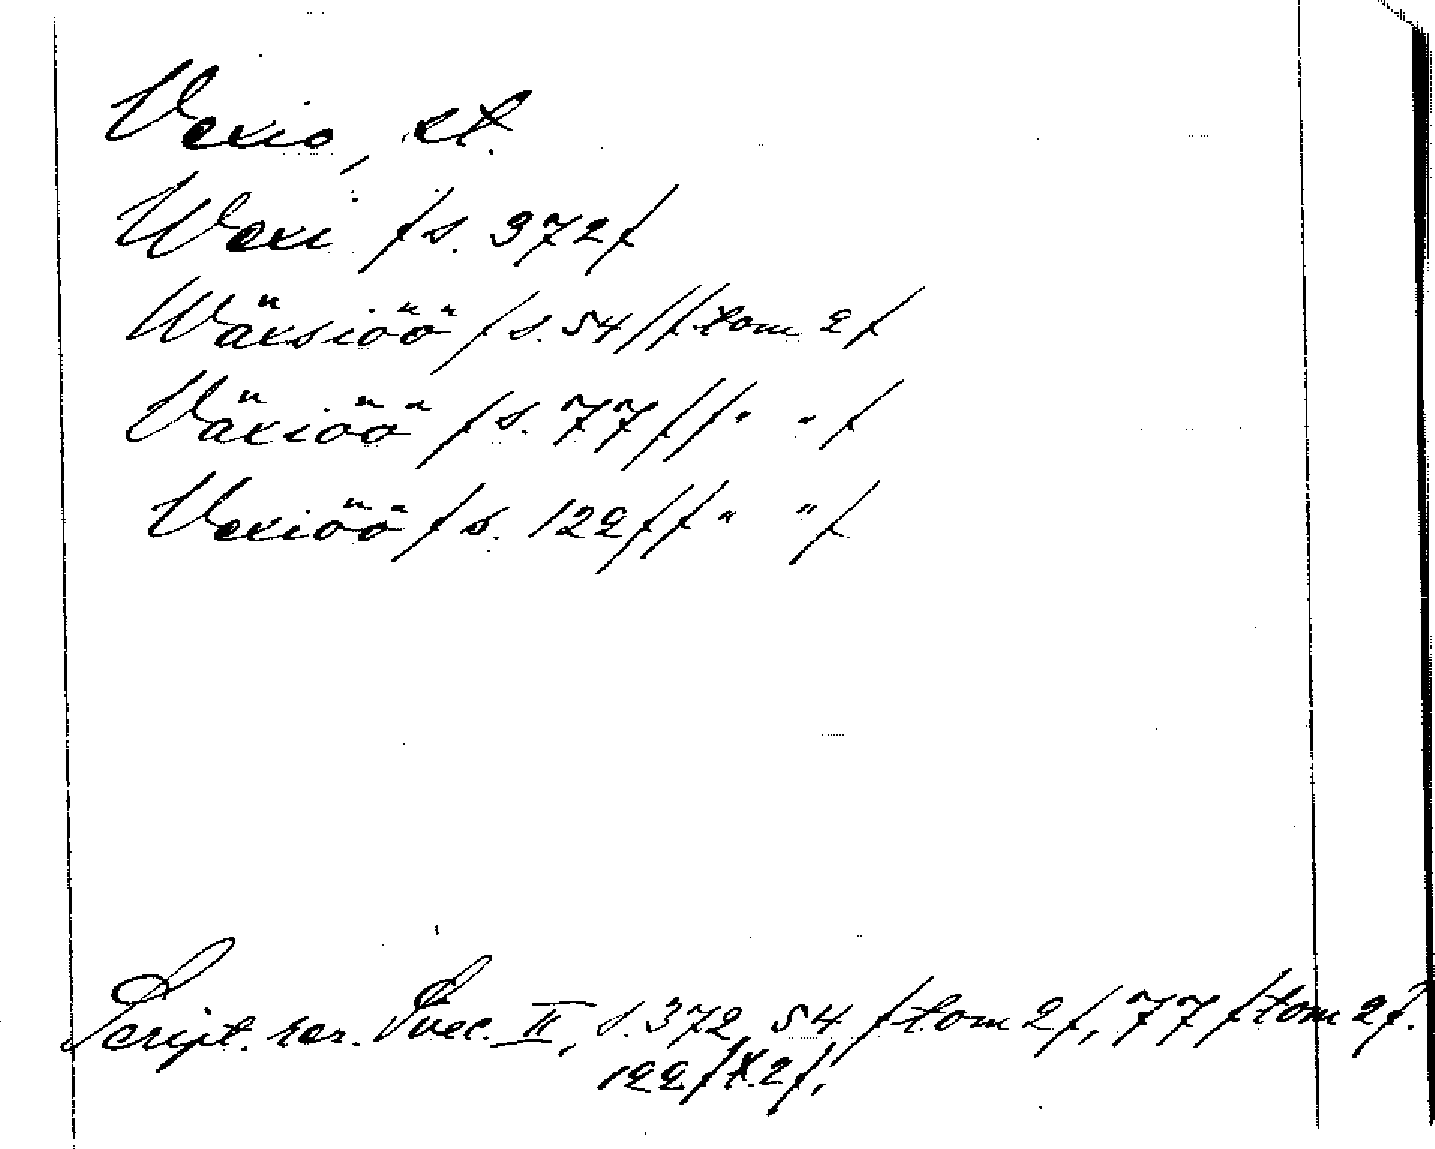 Vexio, st.
Wexi /s. 372/
Wäksiöö /s. 54//tom 2/
Växiöö /s. 77//" "/
Vexiöö /s. 122//" "/
Script. rer. Svec. II, s. 372, 54 /tom 2/, 77 /tom 2/.
122/t. 2/,